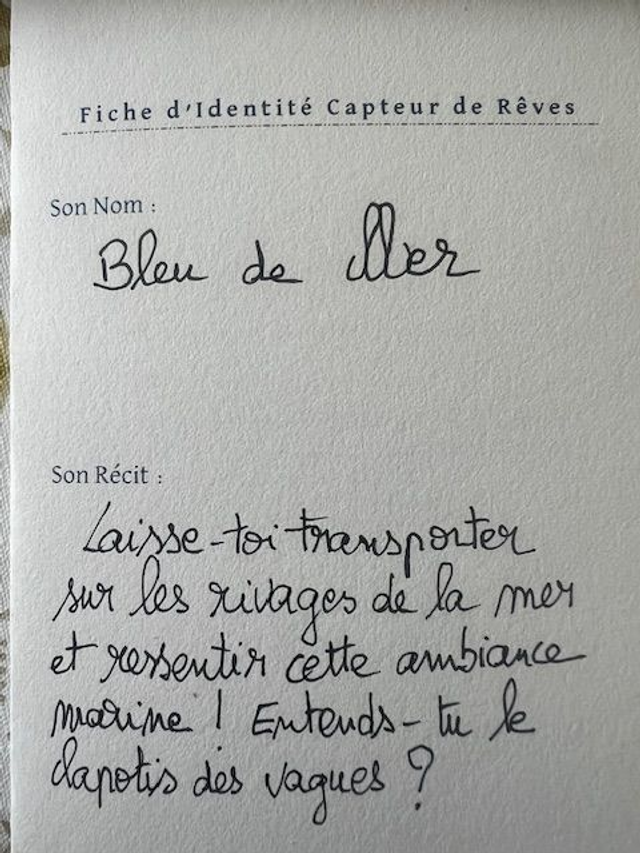 Fiche d'Identité Capteur de Rêves
Son Nom :
Bleu de Mer
Son Récit :
Laisse-toi transporter
sur les rivages de la mer
et ressentir cette ambiance
marine ! Entends-tu le
clapotis des vagues ?